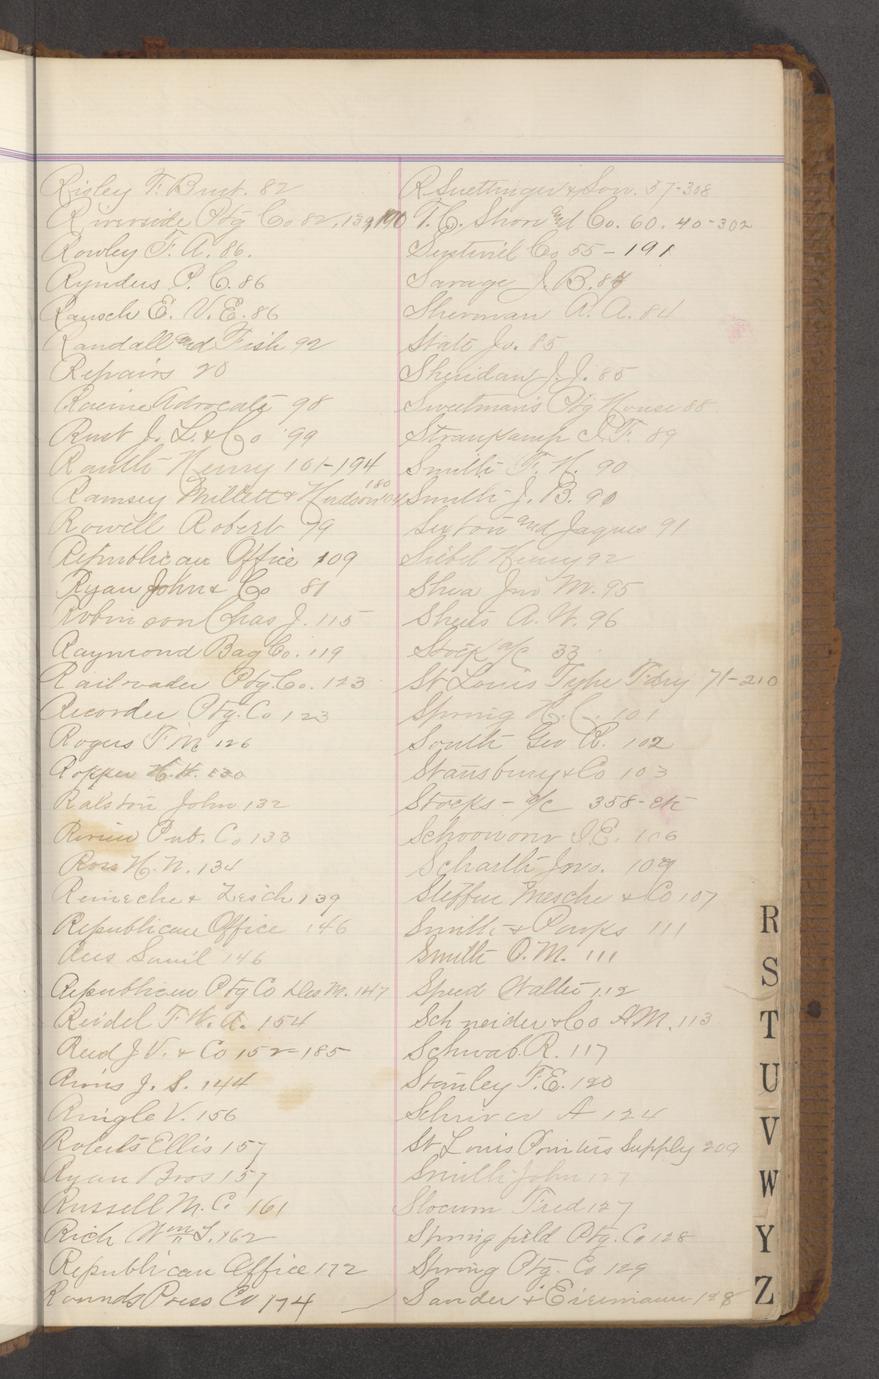 Risley F. Burt. 82
Riverside Ptg Co 82, 139, 190
Rowley F. A. 86.
Rynders P. C. 86
Rausch E. V. E. 86
Randall and Fish 92
Repairs 20
Racine Advocate 98
Rust J. L. & Co 99
Rauth Henry 101-194
Ramsey Millett & Hudson 180
Rowell Robert 79
Republican Office 109
Ryan John & Co 81
Robinson Chas J. 115
Raymond Bag Co. 119
Railroader Ptg. Co. 123
Recorder Ptg. Co 123
Rogers F. M 126
Ropper H. H. 130
Ralston John 132
Review Pub. Co 133
Ross H. N. 134
Reineche & Zesch 139
Republican Office 146
Saml 146
Republican Ptg Co Des M. 147
Reidel F. W. A. 154
Reed J. V. & Co 152-185
J. S. 144
Ringle V. 156
Roberts Ellis 157
Ryan Bros 157
Russell M. C. 161
Rich Wm L. 162
Republican Office 172
Rounds Press Co 174
R Suettinger & Son. 57-308
T. C. Shore and Co. 60. 40-302
Sentinel Co 55-191
Savage J. B. 84
Sherman A. A. 84
State Jo. 85
Sheridan J. J. 85
Sweetman's Ptg House 88
Straukamp J. F. 89
Smith F. H. 90
Smith J. B. 90
Sexton and Jaques 91
Siebel Henry 92
Shea Jno M. 95
Sheets A. W. 96
Stock a/c 33
St Louis Type Fdry 71-210
Spring H. C. 101
South Geo R. 102
Stansbury & Co 103
Stocks - a/c 358-etc
Schoowonr I. E. 106
Scharth Jno. 109
Steffen Mesche & Co 107
Smith & Parks 111
Smith O. M. 111
Speed Walter 112
Schneider & Co A M. 113
Schwab. R. 117
Stanley F. E. 120
Schriver A 124
St Louis Printers Supply 209
Smith John 127
Slocum Fred 127
Springfield Ptg. Co 128
Strong Ptg. Co 129
Sander & Eisemann 128
R
S
T
U
V
W
Y
Z